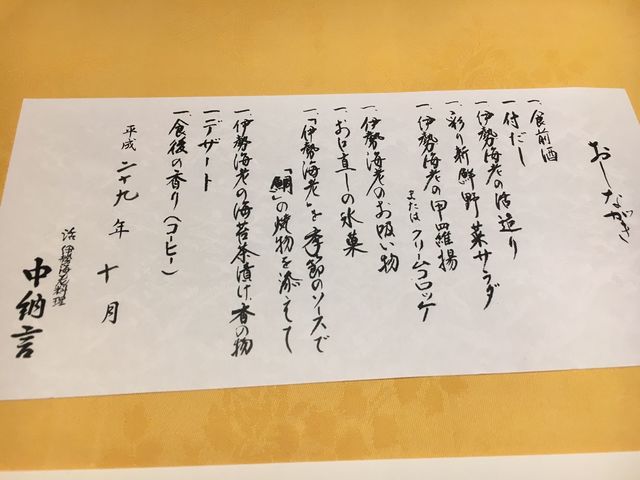 おしながき
一、食前酒
一、付だし
一、伊勢海老の活造り
一、彩り新鮮野菜サラダ
一、伊勢海老の甲羅揚
またはクリームコロッケ
一、伊勢海老のお吸い物
一、お口直しの氷菓
一、「伊勢海老」を季節のソースで
「鯛」の焼物を添えて
一、伊勢海老の海苔茶漬け、香の物
一、デザート
一、食後の香り(コーヒー)
平成二十九年十月
活伊勢海老料理
中納言